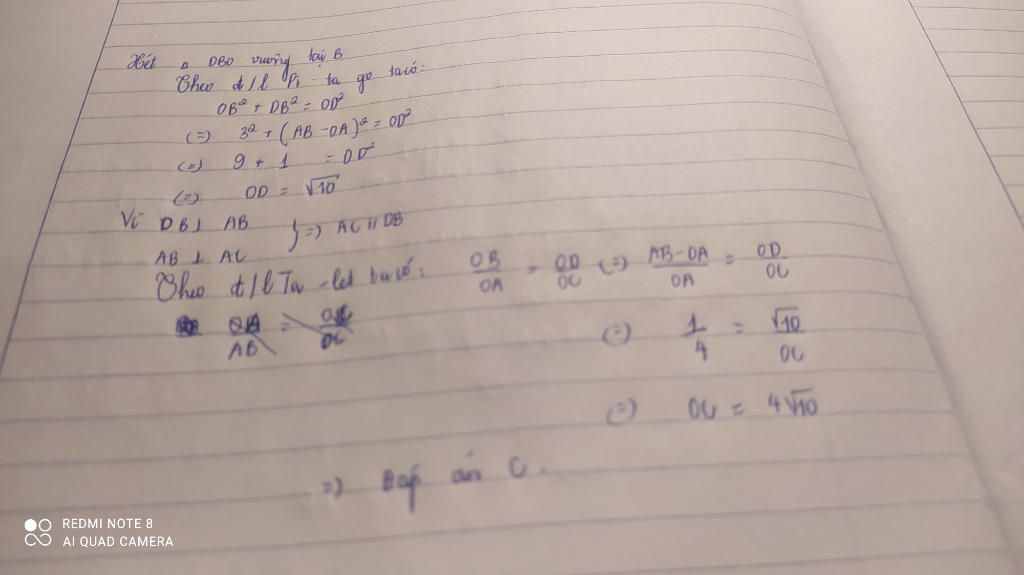 Xét △ DBO vuông tại B
Theo đ/l Pi-ta go ta có:
OB² + DB² = OD²
(=) 3² + (AB - OA)² = OD²
(=) 9 + 1 = OD²
(=) OD = √10
Vì DB⊥ AB
AB ⊥ AC } =) AC // DB
Theo đ/l Ta-let ta có: OB/OA = OD/OC (=) (AB-OA)/OA = OD/OC
(=) 1/4 = √10/OC
(=) OC = 4√10
=) Đáp án C.
REDMI NOTE 8
AI QUAD CAMERA